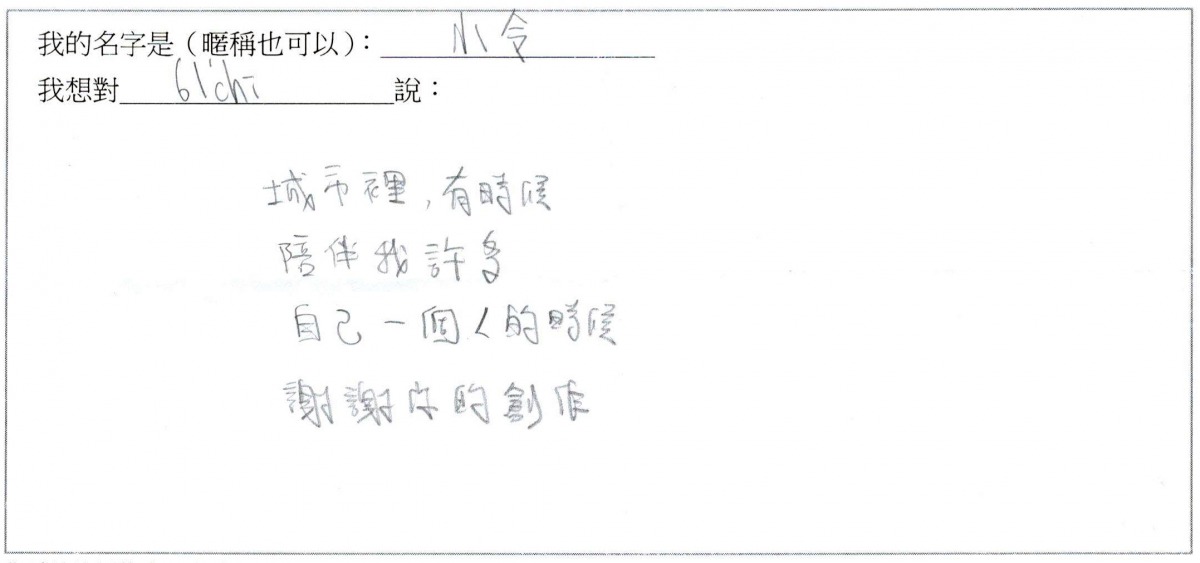 我的名字是（暱稱也可以）：小令
我想對61chi說：
城市裡，有時候
陪伴我許多
自己一個人的時候
謝謝你的創作